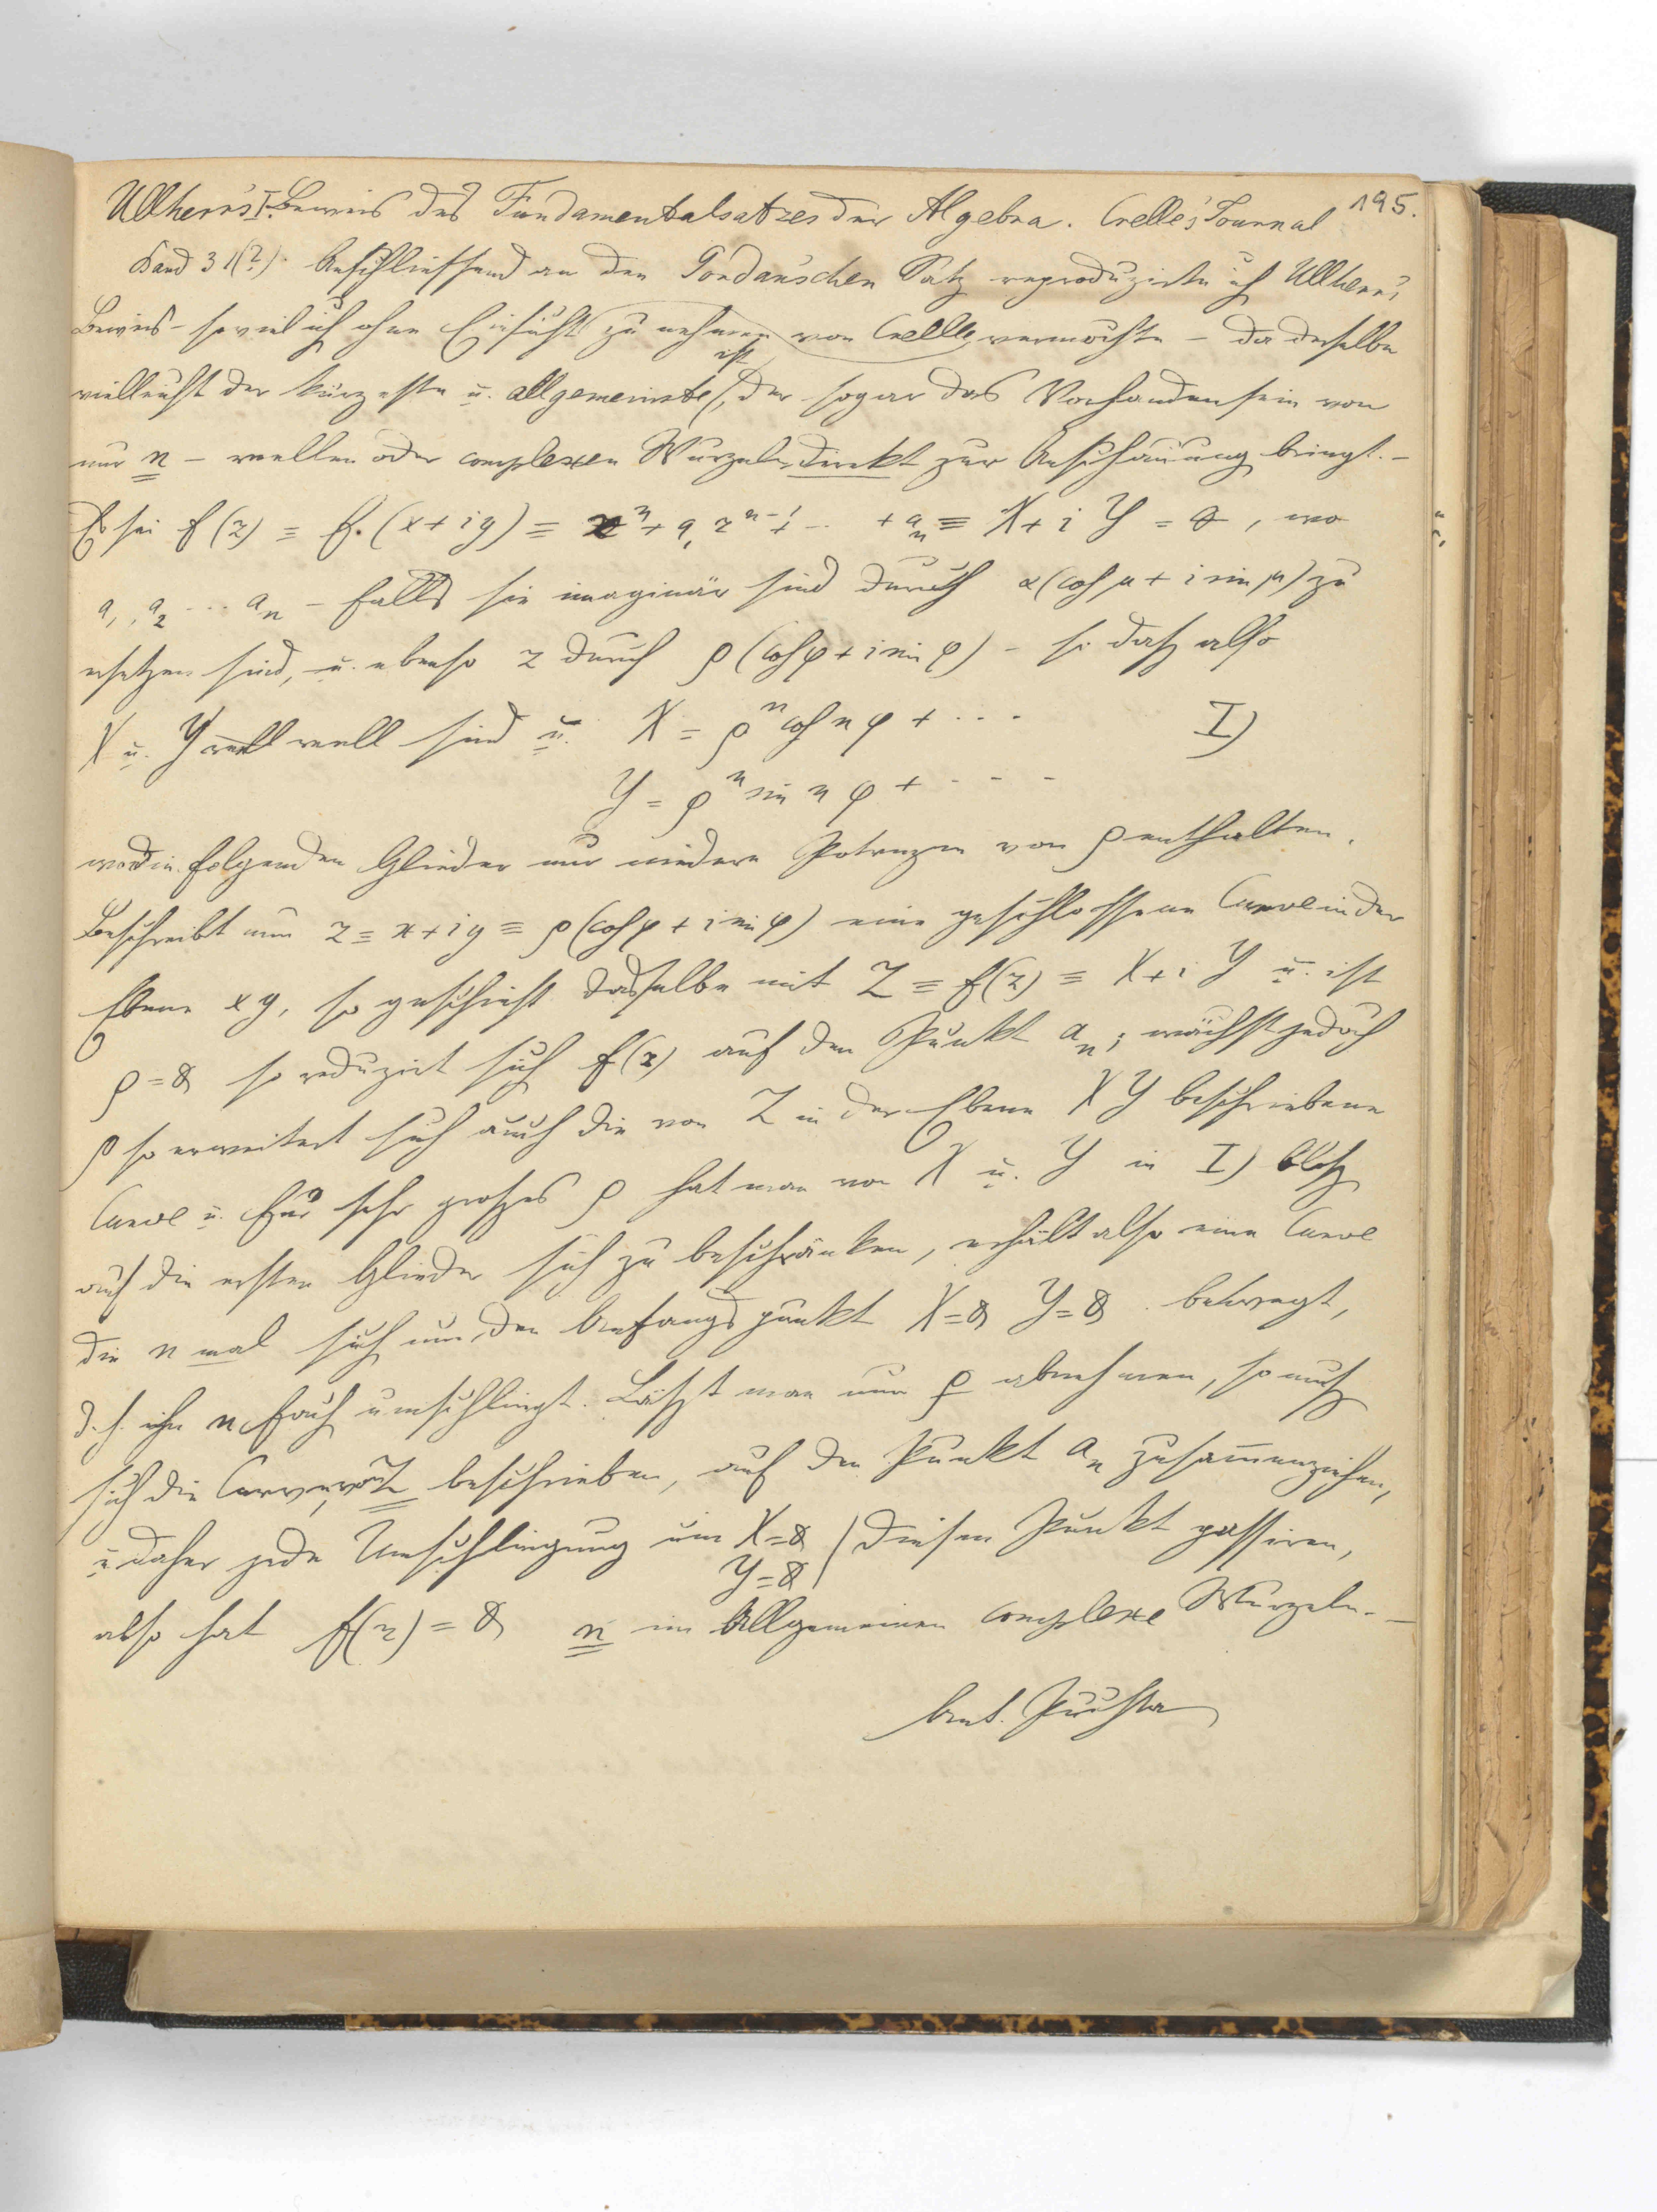 195.
Ullherr's I. Beweis des Fundamentalsatzes der Algebra. Crelle's Journal
Band 31(?). Anschließend an den Gordan'schen Satz reproduzirte ich Ullherr's
Beweis – soviel ich ohne Einsicht zu nehmen von Crelle vermochte – da derselbe
vielleicht der kürzeste u. allgemeinste ist, der sogar das Vorhandensein von
nur n – reellen oder complexen Wurzeln direkt zur Anschauung bringt. –
Es sei f(z) ≡ f.(x+iy) ≡ zⁿ + a₁ zⁿ⁻¹ + ... + aₙ ≡ X + i Y = 0, wo
a₁, a₂ ... aₙ – falls sie imaginär sind durch α(cos μ + i sin μ) zu
ersetzen sind, u. ebenso z durch ρ(cos φ + i sin φ) – so daß also
X u. Y reell sind u. X = ρⁿ cos n φ + ... I)
Y = ρⁿ sin n φ + - - -
wo die folgenden Glieder nur niedere Potenzen von ρ enthalten.
Beschreibt nun z ≡ x+iy ≡ ρ(cos φ + i sin φ) eine geschlossene Curve in der
Ebene xy, so geschieht dasselbe mit Z ≡ f(z) ≡ X + i Y u. ist
ρ = 0 so reduzirt sich f(z) auf den Punkt aₙ; wächst jedoch
ρ so erweitert sich auch die von Z in der Ebene X Y beschriebene
Curve u. für sehr großes ρ hat man von X u. Y in I) bloß
auf die ersten Glieder sich zu beschränken, erhält also eine Curve
die n mal sich um den Anfangspunkt X=0 Y=0 bewegt,
d. h. ihn n fach umschlingt. Läßt man nun ρ abnehmen, so muß
sich die Curve, von Z beschrieben, auf den Punkt aₙ zusammenziehen,
u. daher jede Umschlingung um X=0 ) diesen Punkt passiren,
Y=0
also hat f(z) = 0 n im Allgemeinen complexe Wurzeln. –
Ant. Puchta